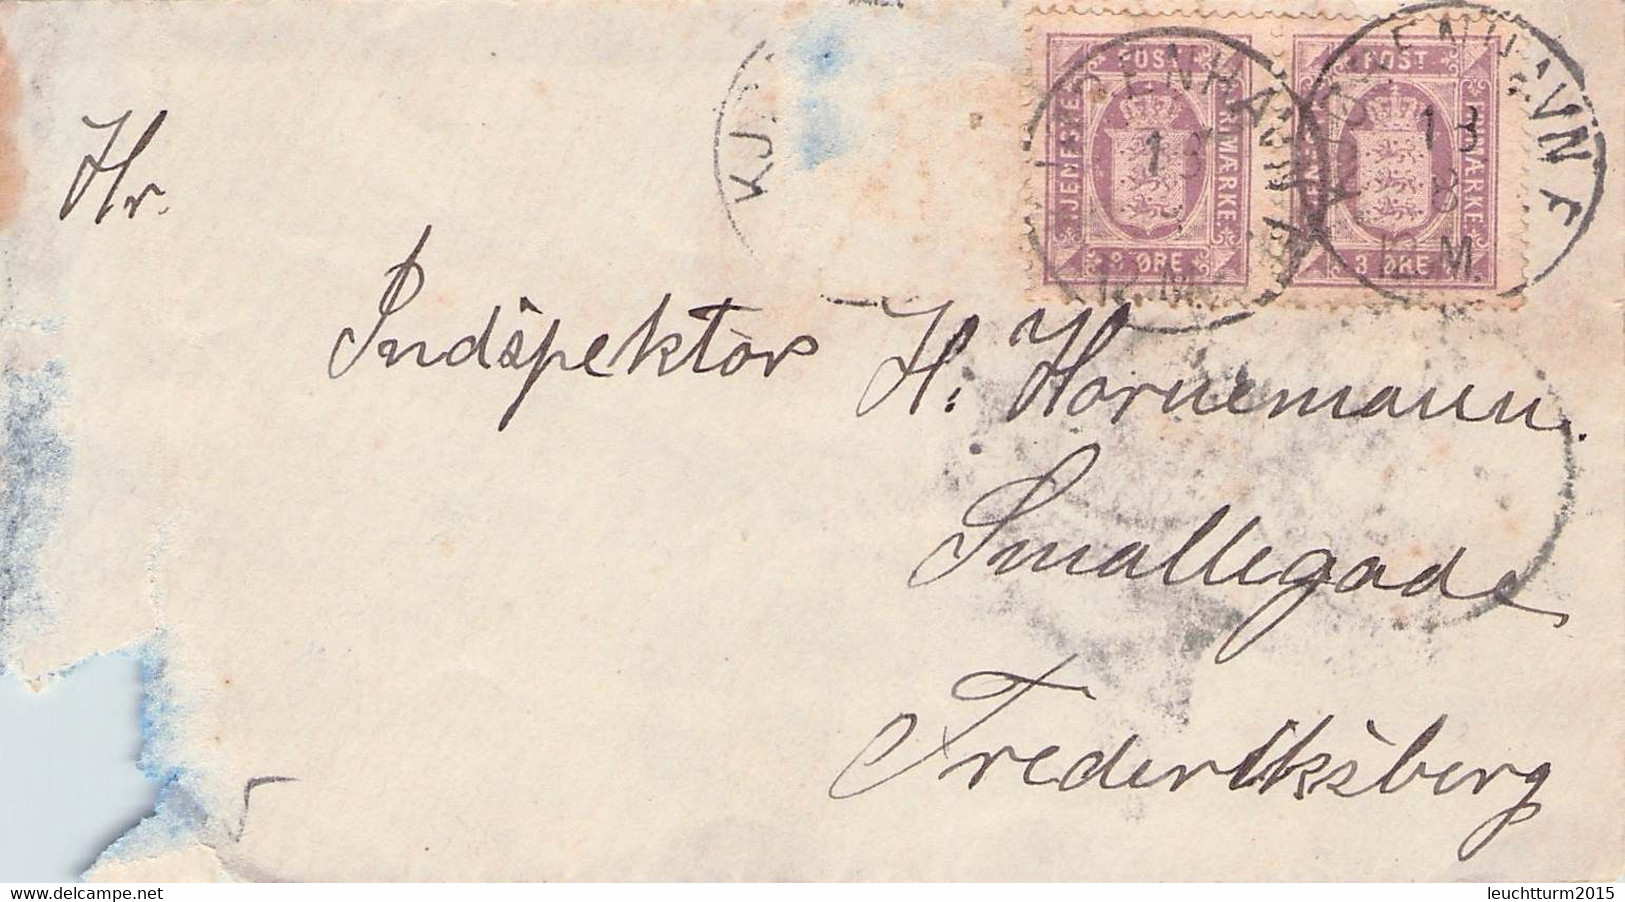 KJ
KJØBENHAVN F
13
KJØBENHAVN F
13
8
POST
TJENESTE
FRIMÆRKE
3 ØRE
POST
FRIMÆRKE
3 ØRE
Hr.
Indspektør H. Hornemann.
Smallegade
Frederiksberg
leuchtturm2015